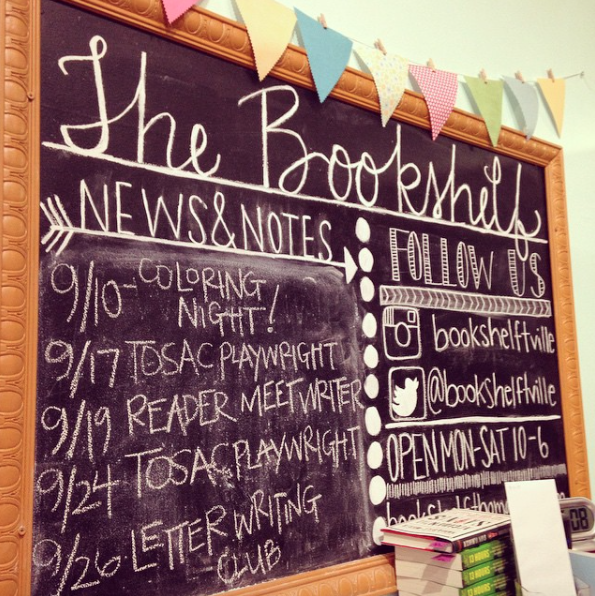 The Bookshelf
NEWS & NOTES
9/10 - COLORING
NIGHT!
9/17 TOSAC PLAYWRIGHT
9/19 READER MEET WRITER
9/24 TOSAC PLAYWRIGHT
9/26 - LETTER WRITING
CLUB
FOLLOW US
bookshelftville
@bookshelftville
OPEN MON-SAT 10-6
13 HOURS
13 HOURS
13 HOURS